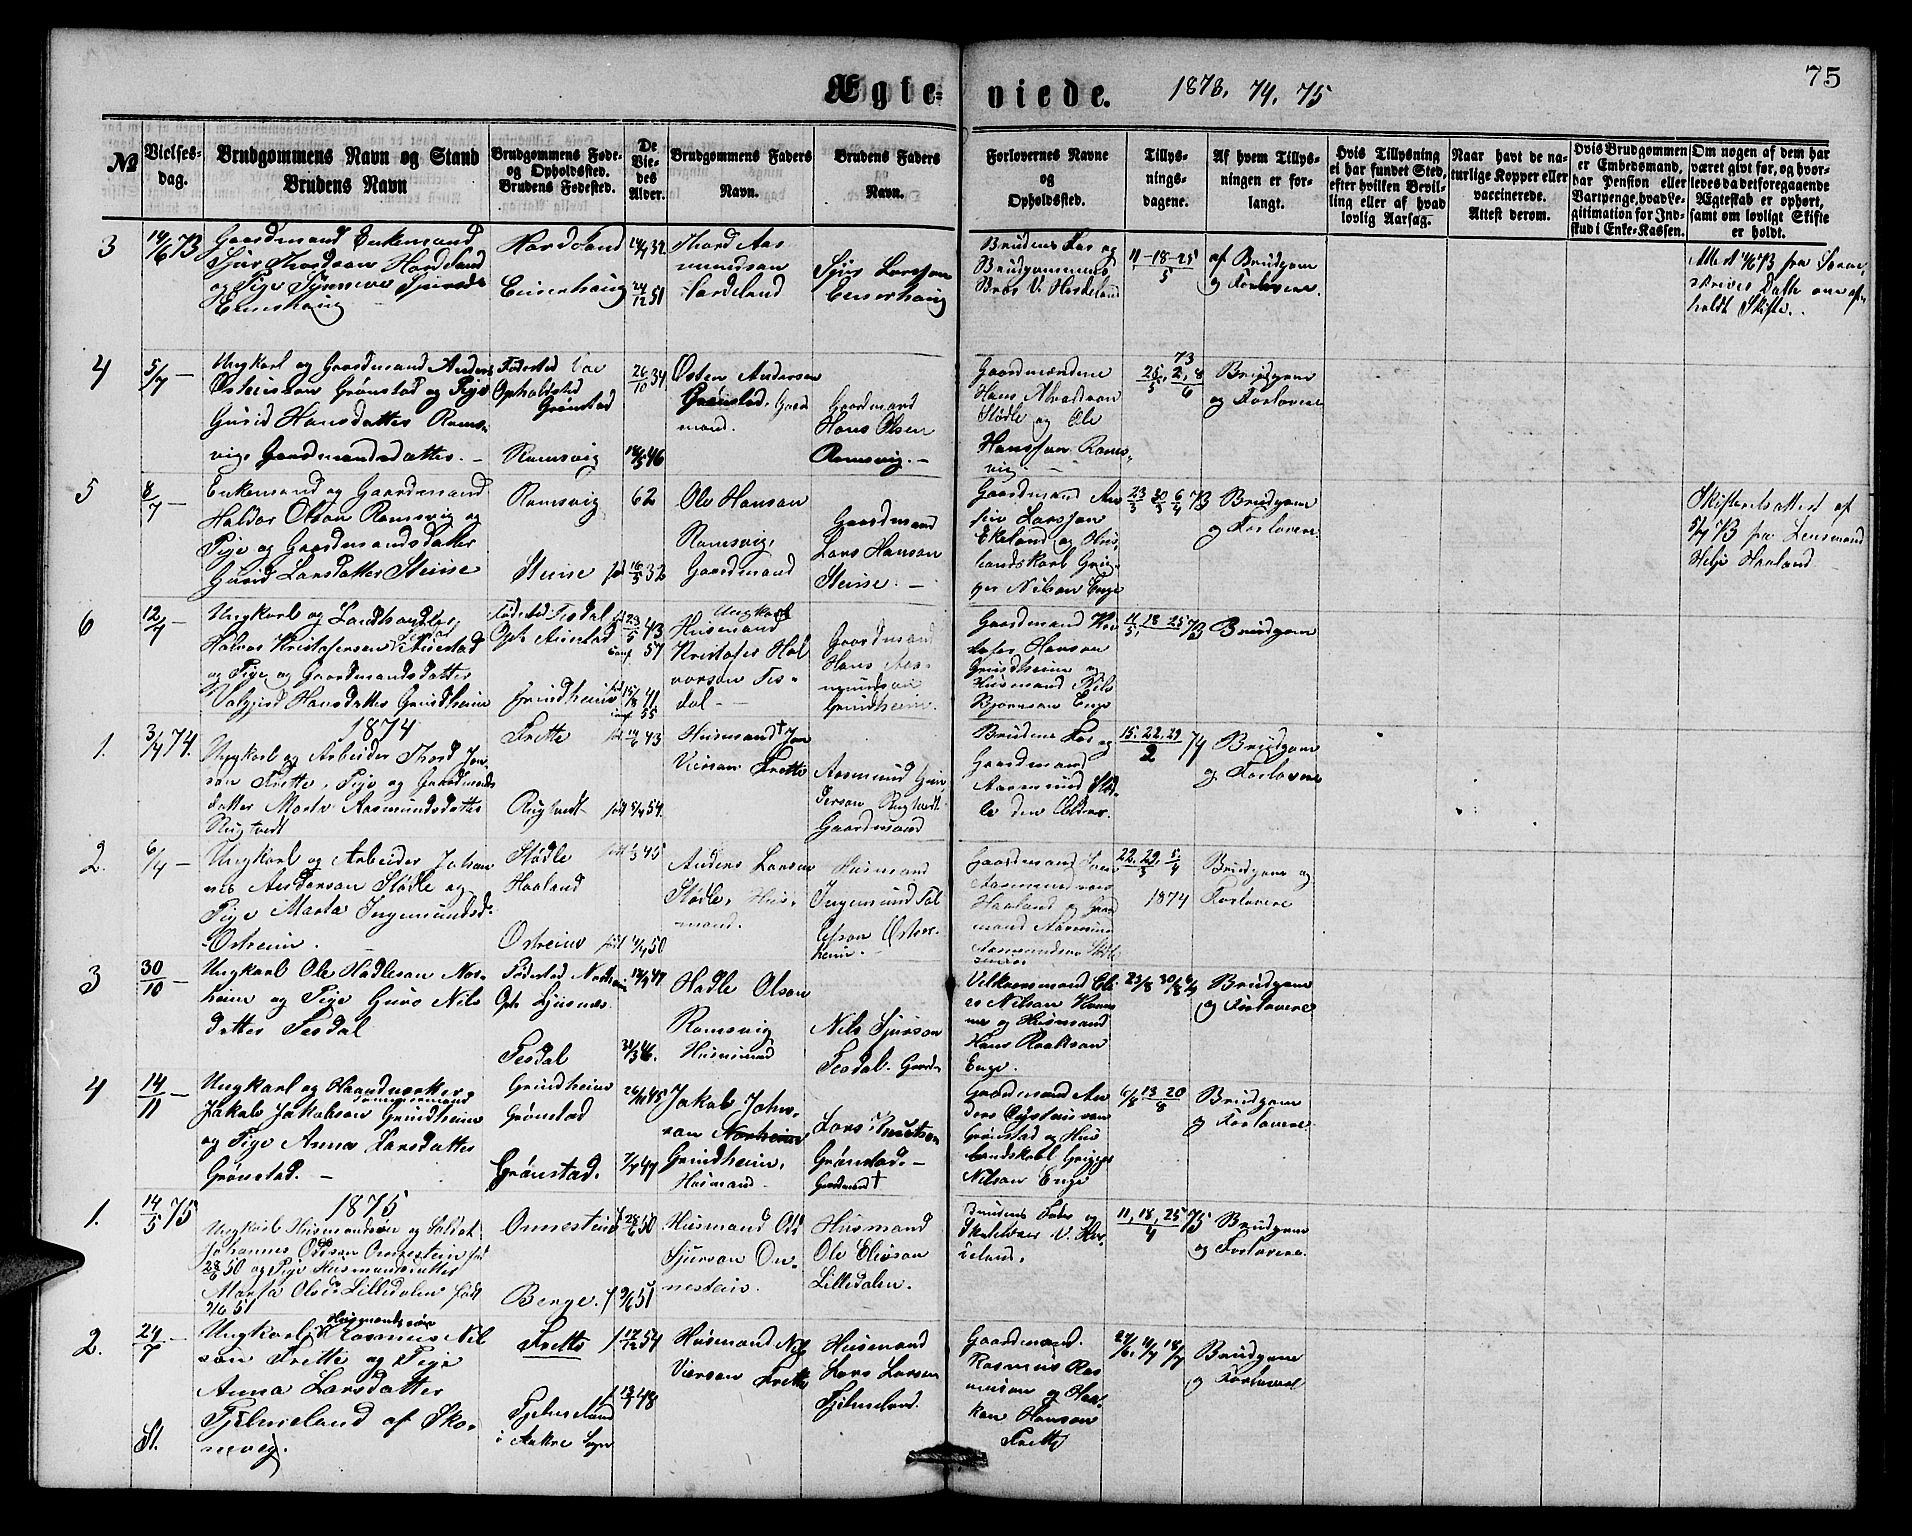 Ægteviede. 1873, 74, 75
75
№
Vielsesdag.
Brudgommens Navn og Stand
Brudens Navn
Brudgommens Føde- og Opholdssted.
Brudens Fødested.
De Viedes Alder.
Brudgommens Faders Navn.
Brudens Faders Navn.
Forlovernes Navne og Opholdssted.
Tillysningsdagene.
Af hvem Tillysningen er forlangt.
Hvis Tillysning ei har fundet Sted, efter hvilken Bevilling eller af hvad lovlig Aarsag.
Naar havt de naturlige Kopper eller vaccinerede. Attest derom.
Hvis Brudgommen er Embedsmand, har Pension eller Vartpenge, hvad Legitimation for Indskud i Enke-Kassen.
Om nogen af dem har været givt før, og hvorledes da det foregaaende Ægteskab er ophørt, samt om lovligt Skifte er holdt.
3
14/6 73
Gaardmand Enkemand
Sjur Thordson Hordeland
og Pige Synneva Sjursd.
Hordeland
14/4 32
24/12 51
Thord Aas
mundson
Hardeland
Sjur Larsson
Brudens Far og
Brudgommens
Bror V. Hordeland
11-18-25
5
af Brudgom
og Forlovere.
holdt Skifte.
4
5/7 —
Ungkarl og Gaardmand Anders
Osteinson Grönstad og Pige
Gurid Hansdatter Rams-
vig, Gaardmandsdatter. —
Födested
Opholdsted
Grönstad
Ramsvig
26/10 34
18/5 46
Osten Anderson
Grönstad, Gaard
mand.
Gaardmand
Hans Olsen
Ramsvig. —
Gaardmændene
Stödle og Ole
Hansson Rams-
vig —
73
25/5, 2, 8/6
Brudgom
og Forlovere
5
8/7 —
Enkemand og Gaardmand
Haldor Olson Ramsvig og
Pige og Gaardmandsdatter
Gurid Larsdatter Steine
Ramsvig
Steine
62
föd 16/5 32
Ole Hanson
Ramsvig,
Gaardmand
Gaardmand
Lars Hanson
Steine. —
Gaardmand
Larsson
Ekeland og Hus-
landskarl Grig-
ger Nilson Enge
23/3 30/3 6/4 73
Brudgom
og Forlovere
Skifteretsattest af
5/7 73 fra Lensmand
Helje Haaland
6
12/7 —
Ungkarl og Landhandler,
Halvor Kristofersen Auestad
og Pige og Gaardmandsdatter
Valgjerd Hansdatter Grindheim
Födested Tesdal
Oph. Auestad
Grindheim
föd 23/5 43
conf 57
föd 15/8 41
conf 55
Ungkarl
Husmand
Kristofer Hal
vorsen Tes-
dal —
Gaardmand
Hans Aas-
mundson
Grindheim.
Gaardmand Kris
tofer Hanson
Grindheim og
Husmand Nils
Bjørnson Enge
11/5, 18 25 73
Brudgom
1874
1.
3/4 74.
Ungkarl og Arbeider Thord Jon
son Frette, Pige og Gaardmands
datter Marta Aasmundsdatter
Rugtvedt
Frette
Rugtvedt
föd 14/6 43
föd 8/4 54.
Husmand † Jon
Vierson Frette
Aasmund Gun
derson Rugtvedt
Gaardmand
Brudens Far og
Gaardmand
Aasmund Stöd-
le den Eldre.
15, 22, 29
2 74
Brudgom
og Forlovere
2.
6/4 —
Ungkarl og Arbeider Johan
nes Anderson Stödle og
Pige Marta Ingemundsd.
Østreim.
Stödle
Haaland
Ostreim
Anders Larson
Stödle, Hus-
mand.
Husmand
Ingemund Tol
lefson Østre-
heim. —
Gaardmand
Aasmundson
Haaland og Gaard
mand Aasmund
Aasmundson Stödle
22, 29, 5/4
3
1874
Brudgom og
Forlovere
3
30/10 —
Ungkarl Ole Hadleson Nor-
heim og Pige Guro Nils
datter Tesdal
Födested Norheim
Oph. Ljusnes.
Tesdal
Hadle Olson
Ramsvig
Husmand
Nils Sjurson
Tesdal. Gaard
Vilkaarsmand
Nilson
og Husmand
Hans
Enge.
23/8 30/8 6/9
Brudgom
og Forlovere
4
14/11 —
Ungkarl og
Jakob Jakobson Grindheim
og Pige Anna Larsdatter
Grönstad. —
Grindheim
Grönstad
Grönstad.
26/11 45
7/7 47
Jakob John-
son Norheim
Grindheim,
Husmand.
Lars Knutson
Grönstad. —
Gaardmand †
Gaardmand An
ders Øisteinson
Grönstad og Hus
landskarl Grigger
Nilson Enge
6/8 13 20
8
Brudgom
og Forlovere.
1875
1.
14/5 75
Ungkarl Husmandssön og Soldat
Johannes Oddson Onnestein föd
28/6 50 og Pige Husmandsdatter
Marta Olsd. Lilledalen född
2/6 51
Onnestein
Berge.
f 28/6 50
f 2/6 51
Husmand Od
Sjurson On-
nestein.
Husmand
Ole Eliasson
Lilledalen.
Brudens Fader og
Skoleholder V.
11, 18, 25 75
4
Brudgom
og Forlovere.
2.
24/7 —
Husmandssön
Ungkarl Rasmus Nil
son Frette og Pige
Anna Larsdatter
Fjelmeland af Sko-
nevig.
St.
Frette
Fjelmeland
i Aakre Sogn
f 17/12 54
f 13/4 48
Husmand Nils
Vierson Frette
Husmand
Lars Larson
Fjelmeland.
Gaardmand.
Rasmus Ras
musson og Haa-
kon Hanson
Frette
27/6, 11/7 18/7
Brudgom
og Forlovere